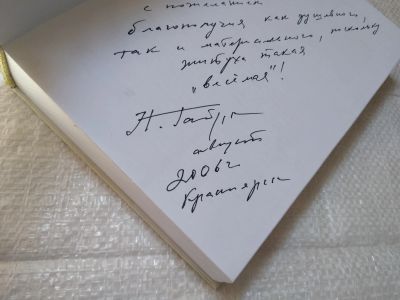 с пожеланием
благополучия как душевного,
так и материального, поскольку
житуха такая
„весёлая"!
Н. Гайду
август
2006 г
Красноярск